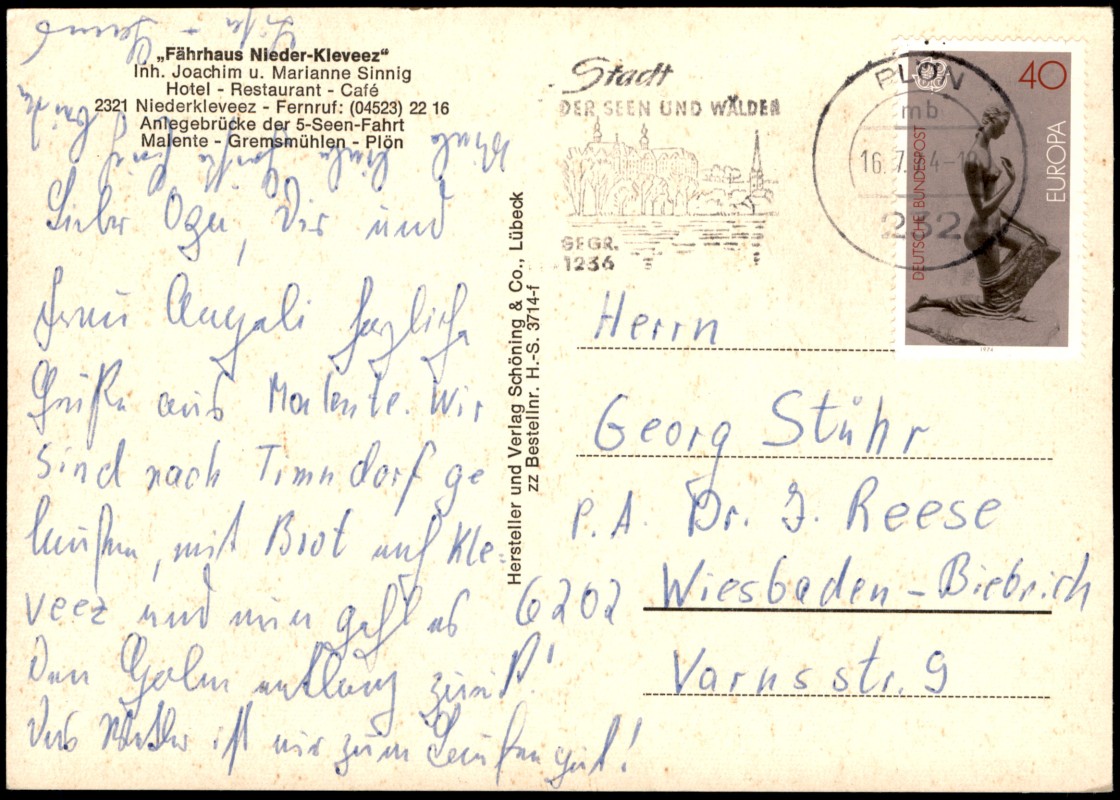 „Fährhaus Nieder-Kleveez"
Inh. Joachim u. Marianne Sinnig
Hotel - Restaurant - Café
2321 Niederkleveez - Fernruf: (04523) 22 16
Anlegebrücke der 5-Seen-Fahrt
Malente - Gremsmühlen - Plön
Lieber Opa, Dir und
Frau Angali herzliche
Grüße aus Malente. Wir
sind nach Timmdorf ge
laufen, mit Boot auf Kle-
veez und nun geht es
den Holm entlang zurück!
Das Wetter ist nur zum Laufen gut!
Hersteller und Verlag Schöning & Co., Lübeck
zz Bestellnr. H.-S. 3714-f
Stadt
DER SEEN UND WÄLDER
GEGR.
1236
PLÖN
mb
16.7.
232
40
EUROPA
DEUTSCHE BUNDESPOST
1974
Herrn
Georg Stühr
P.A. Dr. J. Reese
6202 Wiesbaden-Biebrich
Varnsstr. 9